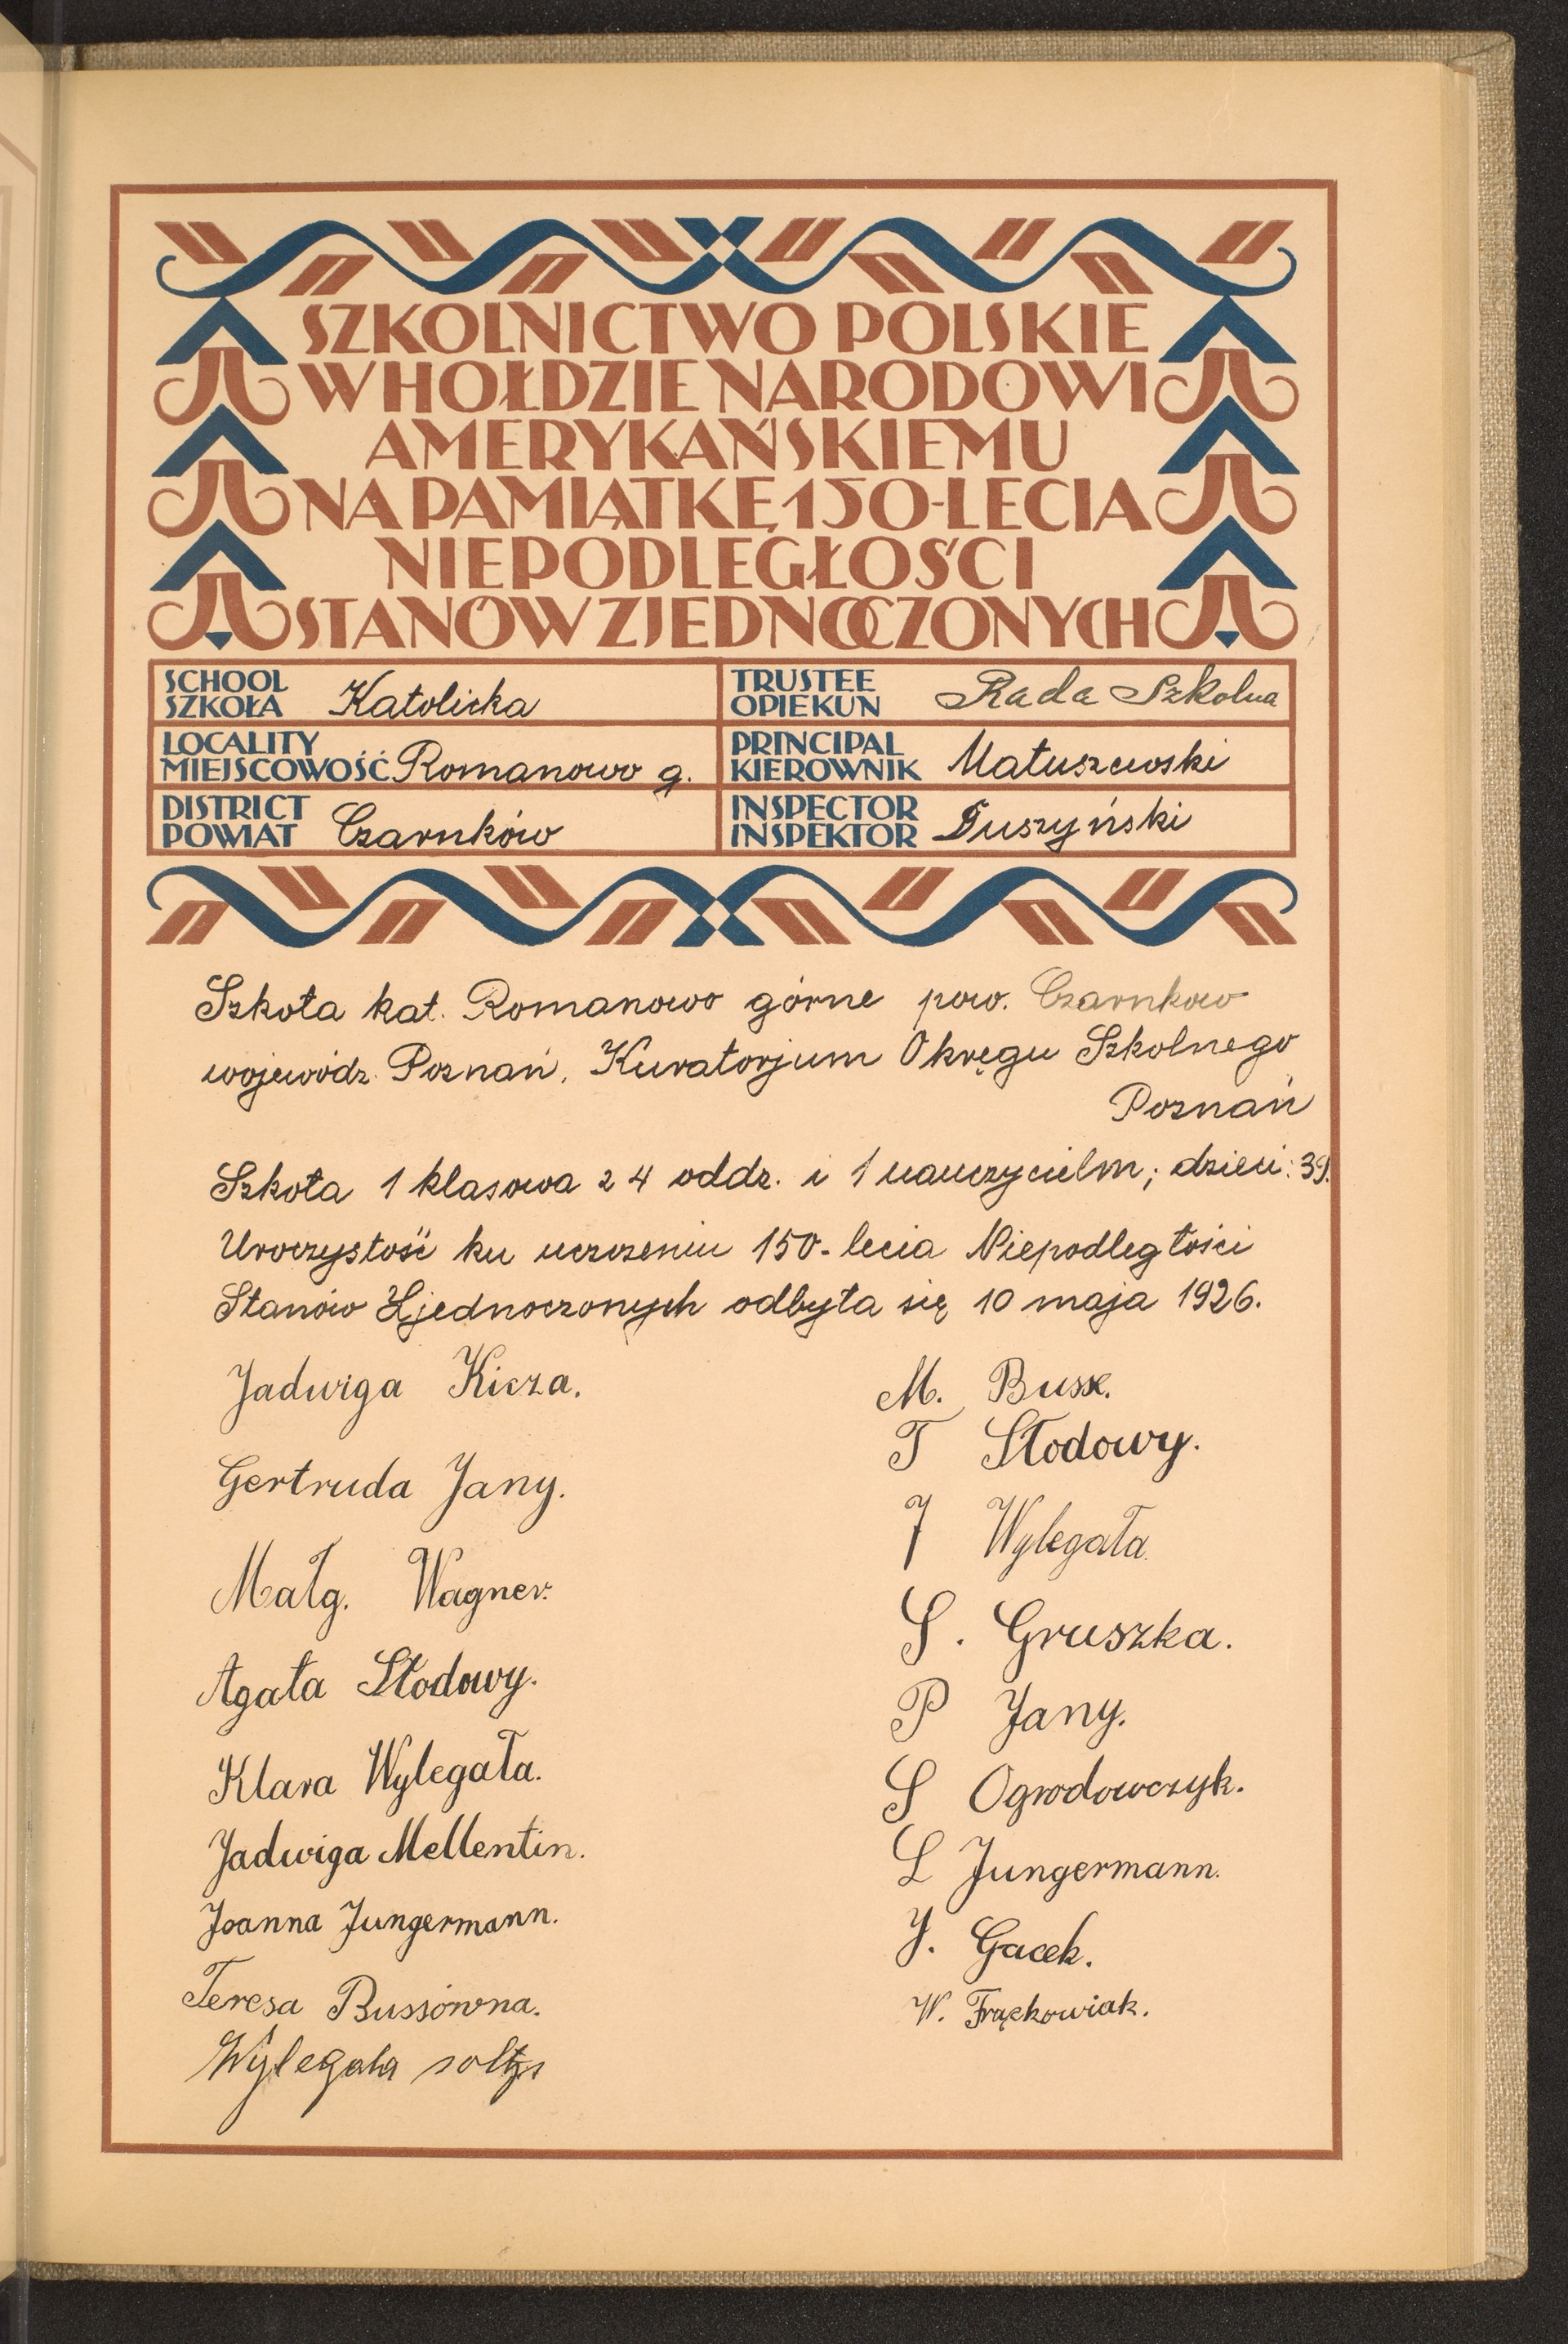 SZKOLNICTWO POLSKIE
W HOŁDZIE NARODOWI
AMERYKAŃSKIEMU
NA PAMIĄTKĘ 150-LECIA
NIEPODLEGŁOŚCI
STANÓW ZJEDNOCZONYCH
SCHOOL
SZKOŁA Katolicka
TRUSTEE
OPIEKUN Rada Szkolna
LOCALITY
MIEJSCOWOŚĆ Romanowo g.
PRINCIPAL
KIEROWNIK Matuszewski
DISTRICT
POWIAT Czarnków
INSPECTOR
INSPEKTOR Duszyński
Szkoła kat. Romanowo górne pow. Czarnkow
wojewódz. Poznań, Kuratorjum Okręgu Szkolnego
Poznań
Szkoła 1 klasowa z 4 oddz. i 1 nauczycielm; dzieci: 39.
Uroczystość ku uczczeniu 150-lecia Niepodległości
Stanów Zjednoczonych odbyła się 10 maja 1926.
Jadwiga Kicza.
Gertruda Jany.
Małg. Wagner.
Agata Słodowy.
Klara Wylegała.
Jadwiga Mellentin.
Joanna Jungermann.
Teresa Bussówna.
Wylegała sołtys
M. Busse.
T Słodowy.
J Wylegała.
S. Gruszka.
P Jany.
S Ogrodowczyk.
L Jungermann.
J. Gacek.
W. Frąckowiak.